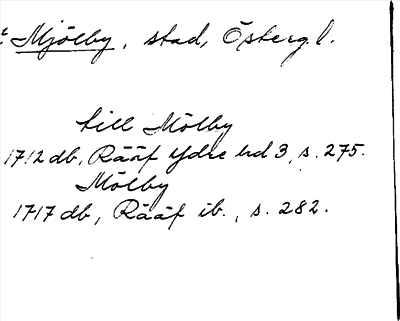 Mjölby, stad, Österg.l.
till Mölby
1712 db, Rääf Ydre hd 3, s. 275.
Mölby
1717 db, Rääf ib., s. 282.